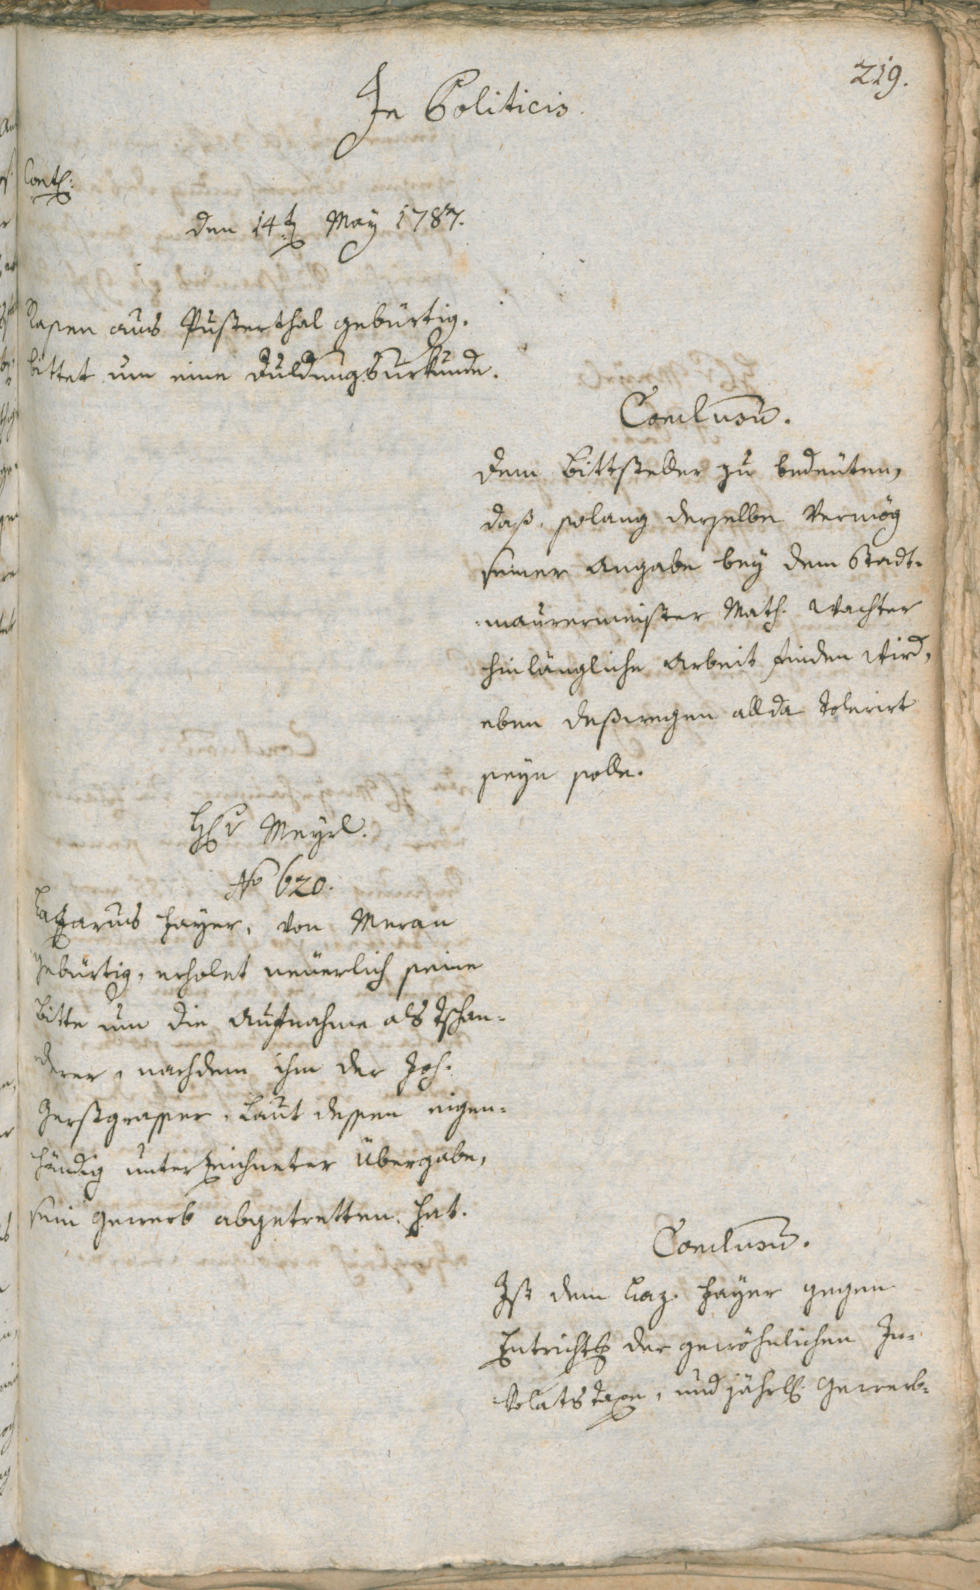 219.
In Politicis.
Cont.
den 14t May 1787.
Rasen aus Pusterthal gebürtig.
bittet um eine Duldungsurkunde.
Conclusum.
Dem Bittsteller zu bedeuten,
daß, solang derselbe vermög
seiner Angabe bey dem Stadt-
maurermeister Math. Wachter
hinlängliche Arbeit finden wird,
eben deßwegen allda tolerirt
seyn solle.
Hr Meyrl.
No 620.
Lazarus Hayer, von Meran
gebürtig, erholet neuerlich seine
Bitte um die Aufnahme als Tschan-
derer, nachdem ihm der Jos.
Gerstgrasser, laut dessen eigen-
händig unterzeichneter Übergabe,
sein Gewerb abgetretten hat.
Conclusum.
Ist dem Laz. Hayer gegen
Entricht der gewöhnlichen In-
kolatstaxe, und jährl. Gewerb-